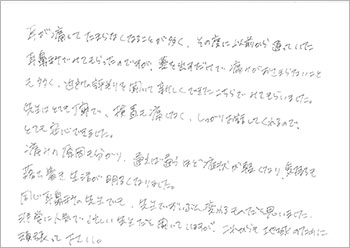 耳が痛してたまらなくなることが多く、その度に以前から通っていた
耳鼻科でみてもらったのですが、薬を出すだけで痛みがおさまらないこと
も多く、近所の評判を聞いて新しくできたこちらでみてもらいました。
先生はとても丁寧で、検査も痛くなく、しっかり治療してくれるので、
とても安心できました。
痛みの原因も分かり、通えば通うほど症状が軽くなり、気持ちも
落ち着き生活が明るくなりました。
同じ耳鼻科の先生でも、先生でこんなに変わるものだと思いました。
非常にお忙しい先生だと聞いていますが、これからも地域のために
頑張って下さい。